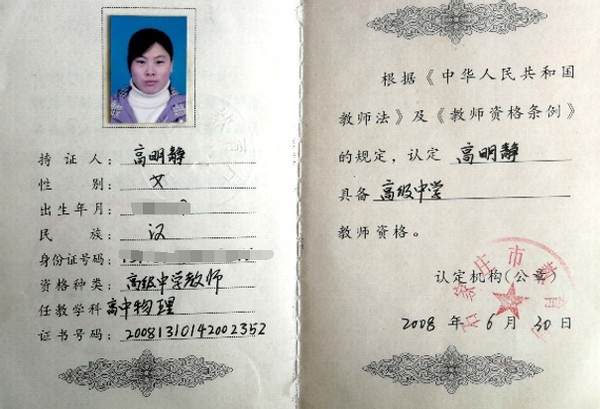 持证人：高明静
性别：女
出生年月：
民族：汉
身份证号码：
资格种类：高级中学教师
任教学科 高中物理
证书号码：20081310142002352
根据《中华人民共和国
教师法》及《教师资格条例》
的规定，认定 高明静
具备 高级中学
教师资格。
认定机构(公章)
2008 年 6 月 30 日
家庄市教育